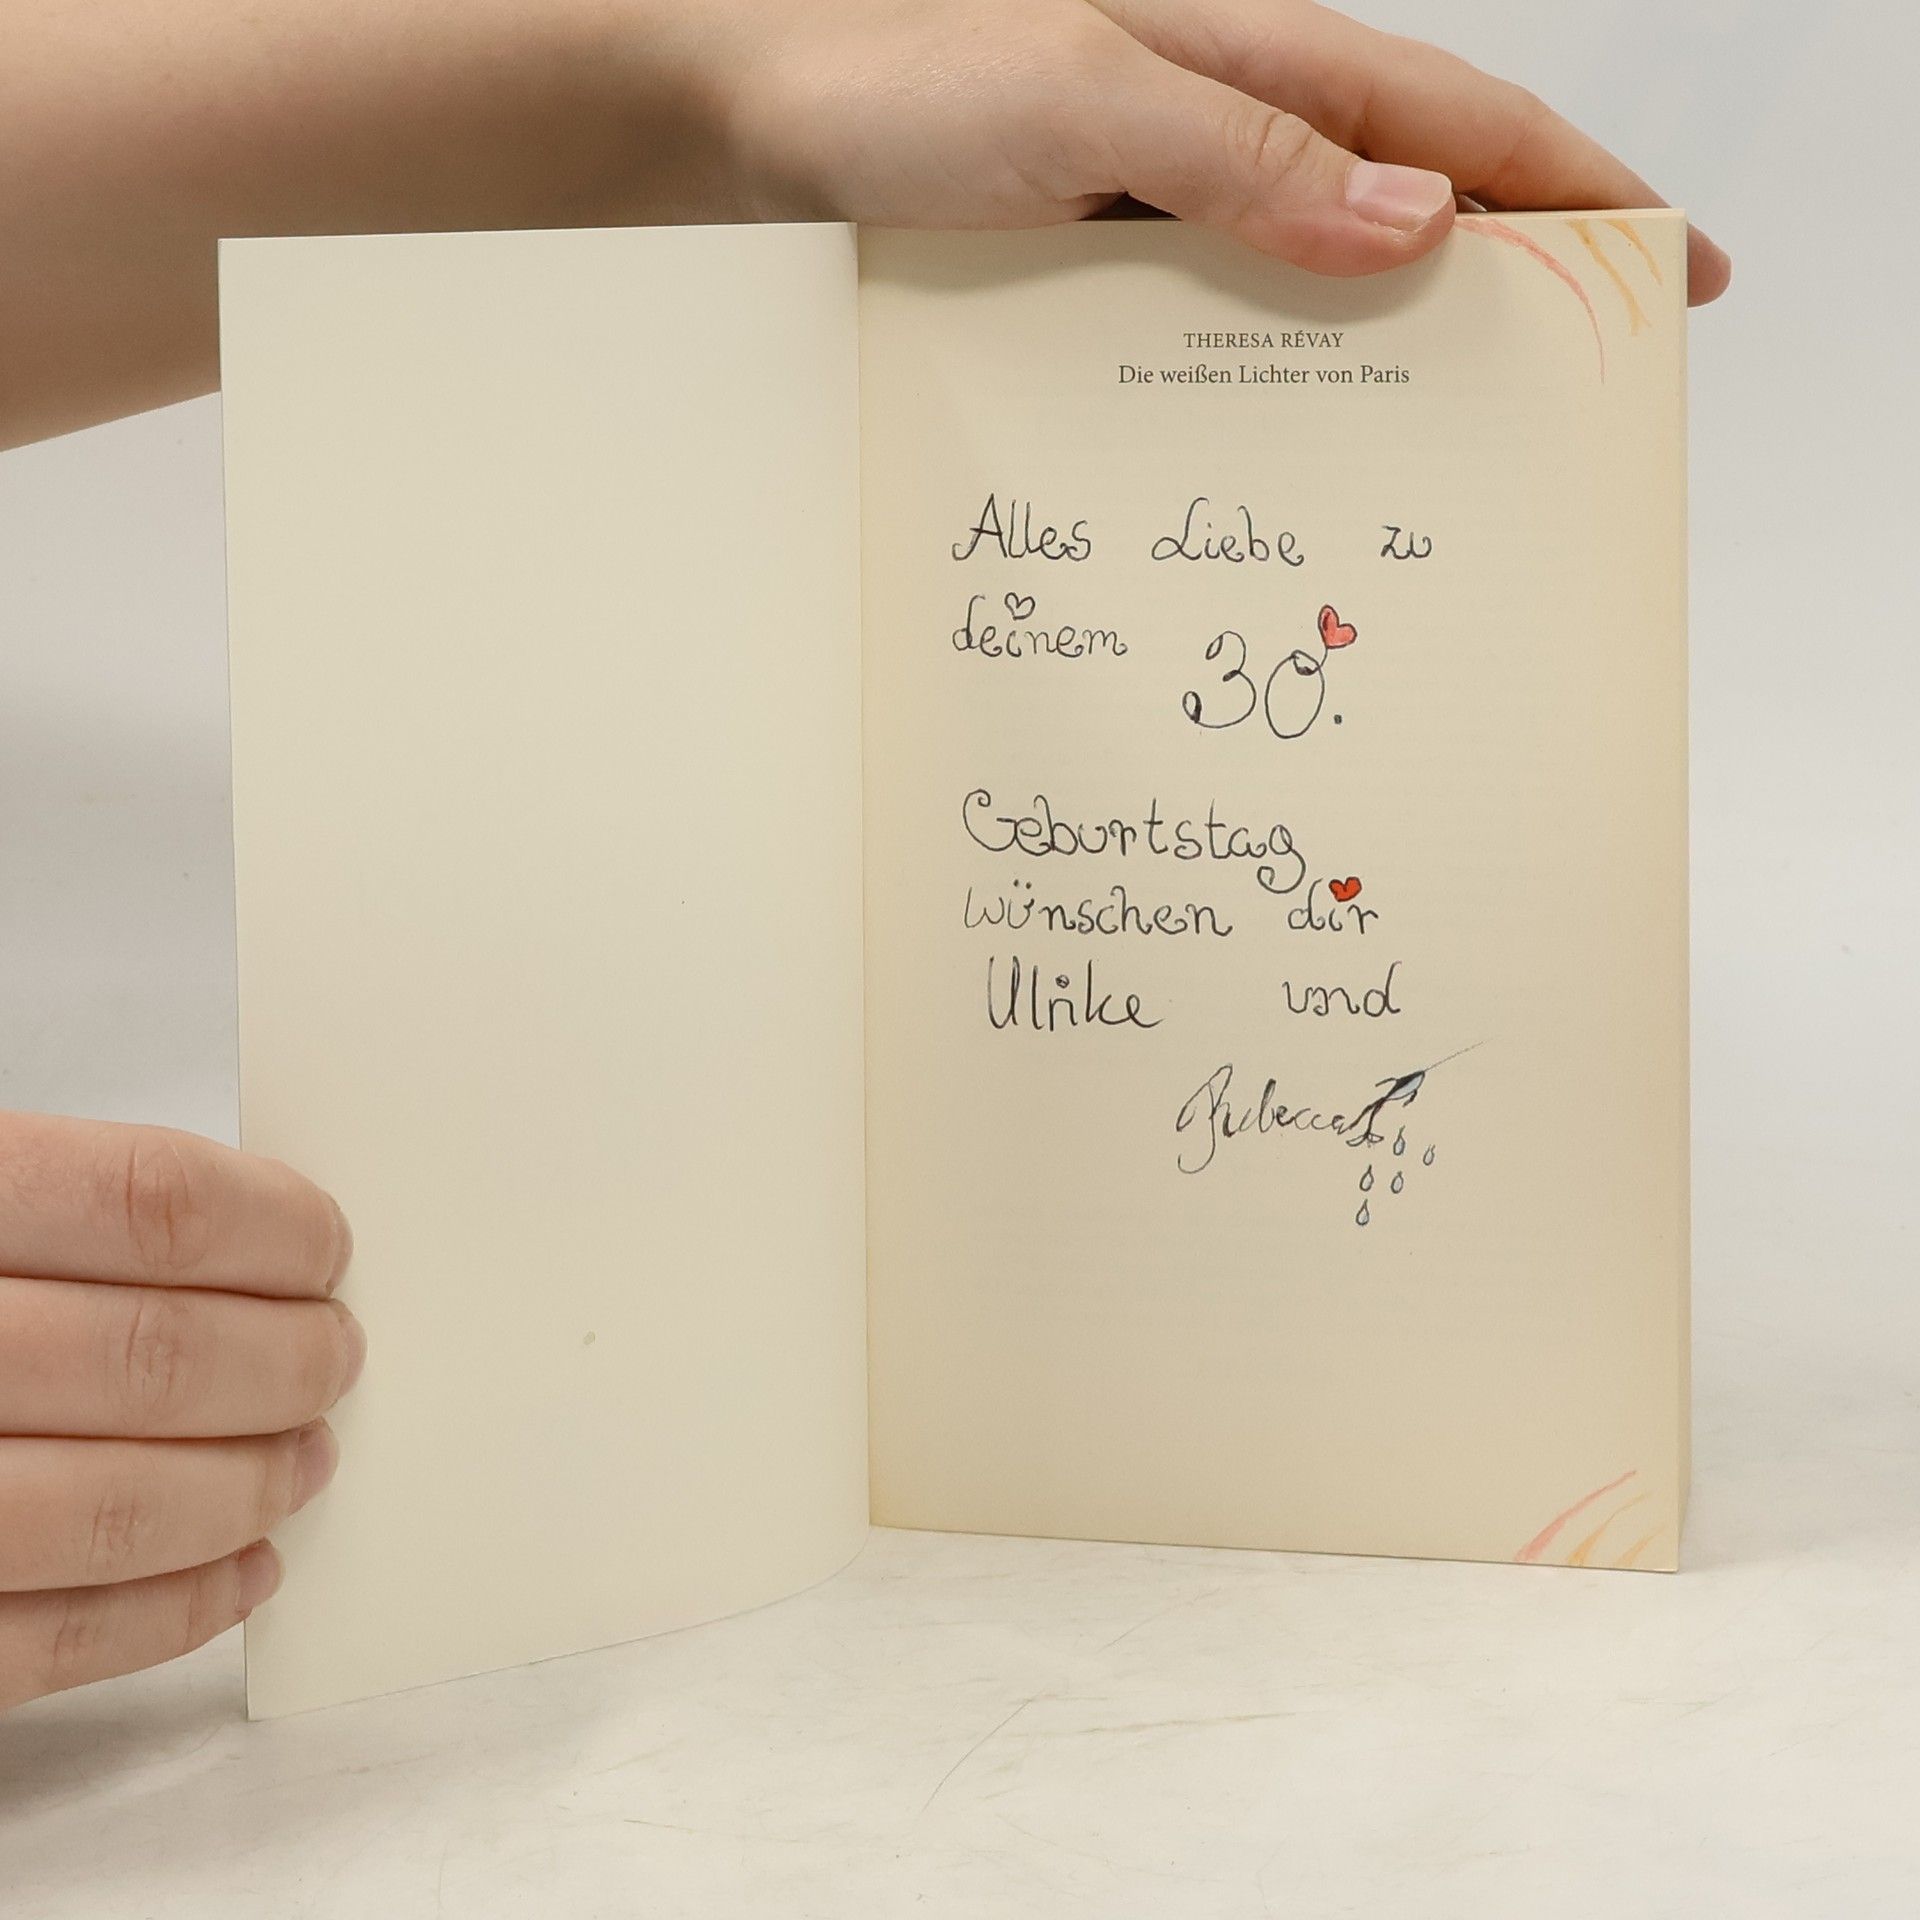 THERESA RÉVAY
Die weißen Lichter von Paris
Alles Liebe zu
deinem
30.
Geburtstag
wünschen dir
Ulrike und
Rebecca